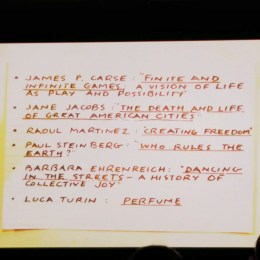 • JAMES P. CARSE : "FINITE AND
INFINITE GAMES, A VISION OF LIFE
AS PLAY AND POSSIBILITY"
• JANE JACOBS : "THE DEATH AND LIFE
OF GREAT AMERICAN CITIES"
• RAOUL MARTINEZ : "CREATING FREEDOM"
• PAUL STEINBERG : "WHO RULES THE
EARTH?"
• BARBARA EHRENREICH : "DANCING
IN THE STREETS – A HISTORY OF
COLLECTIVE JOY"
• LUCA TURIN : PERFUME